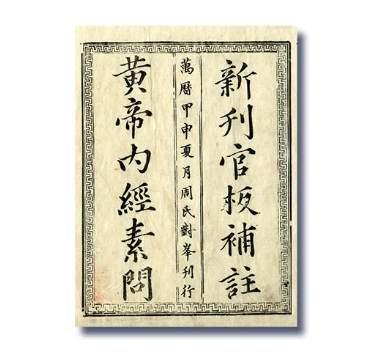 新刋官板補註
萬曆甲申夏月周氏對峯刊行
黃帝内經素問